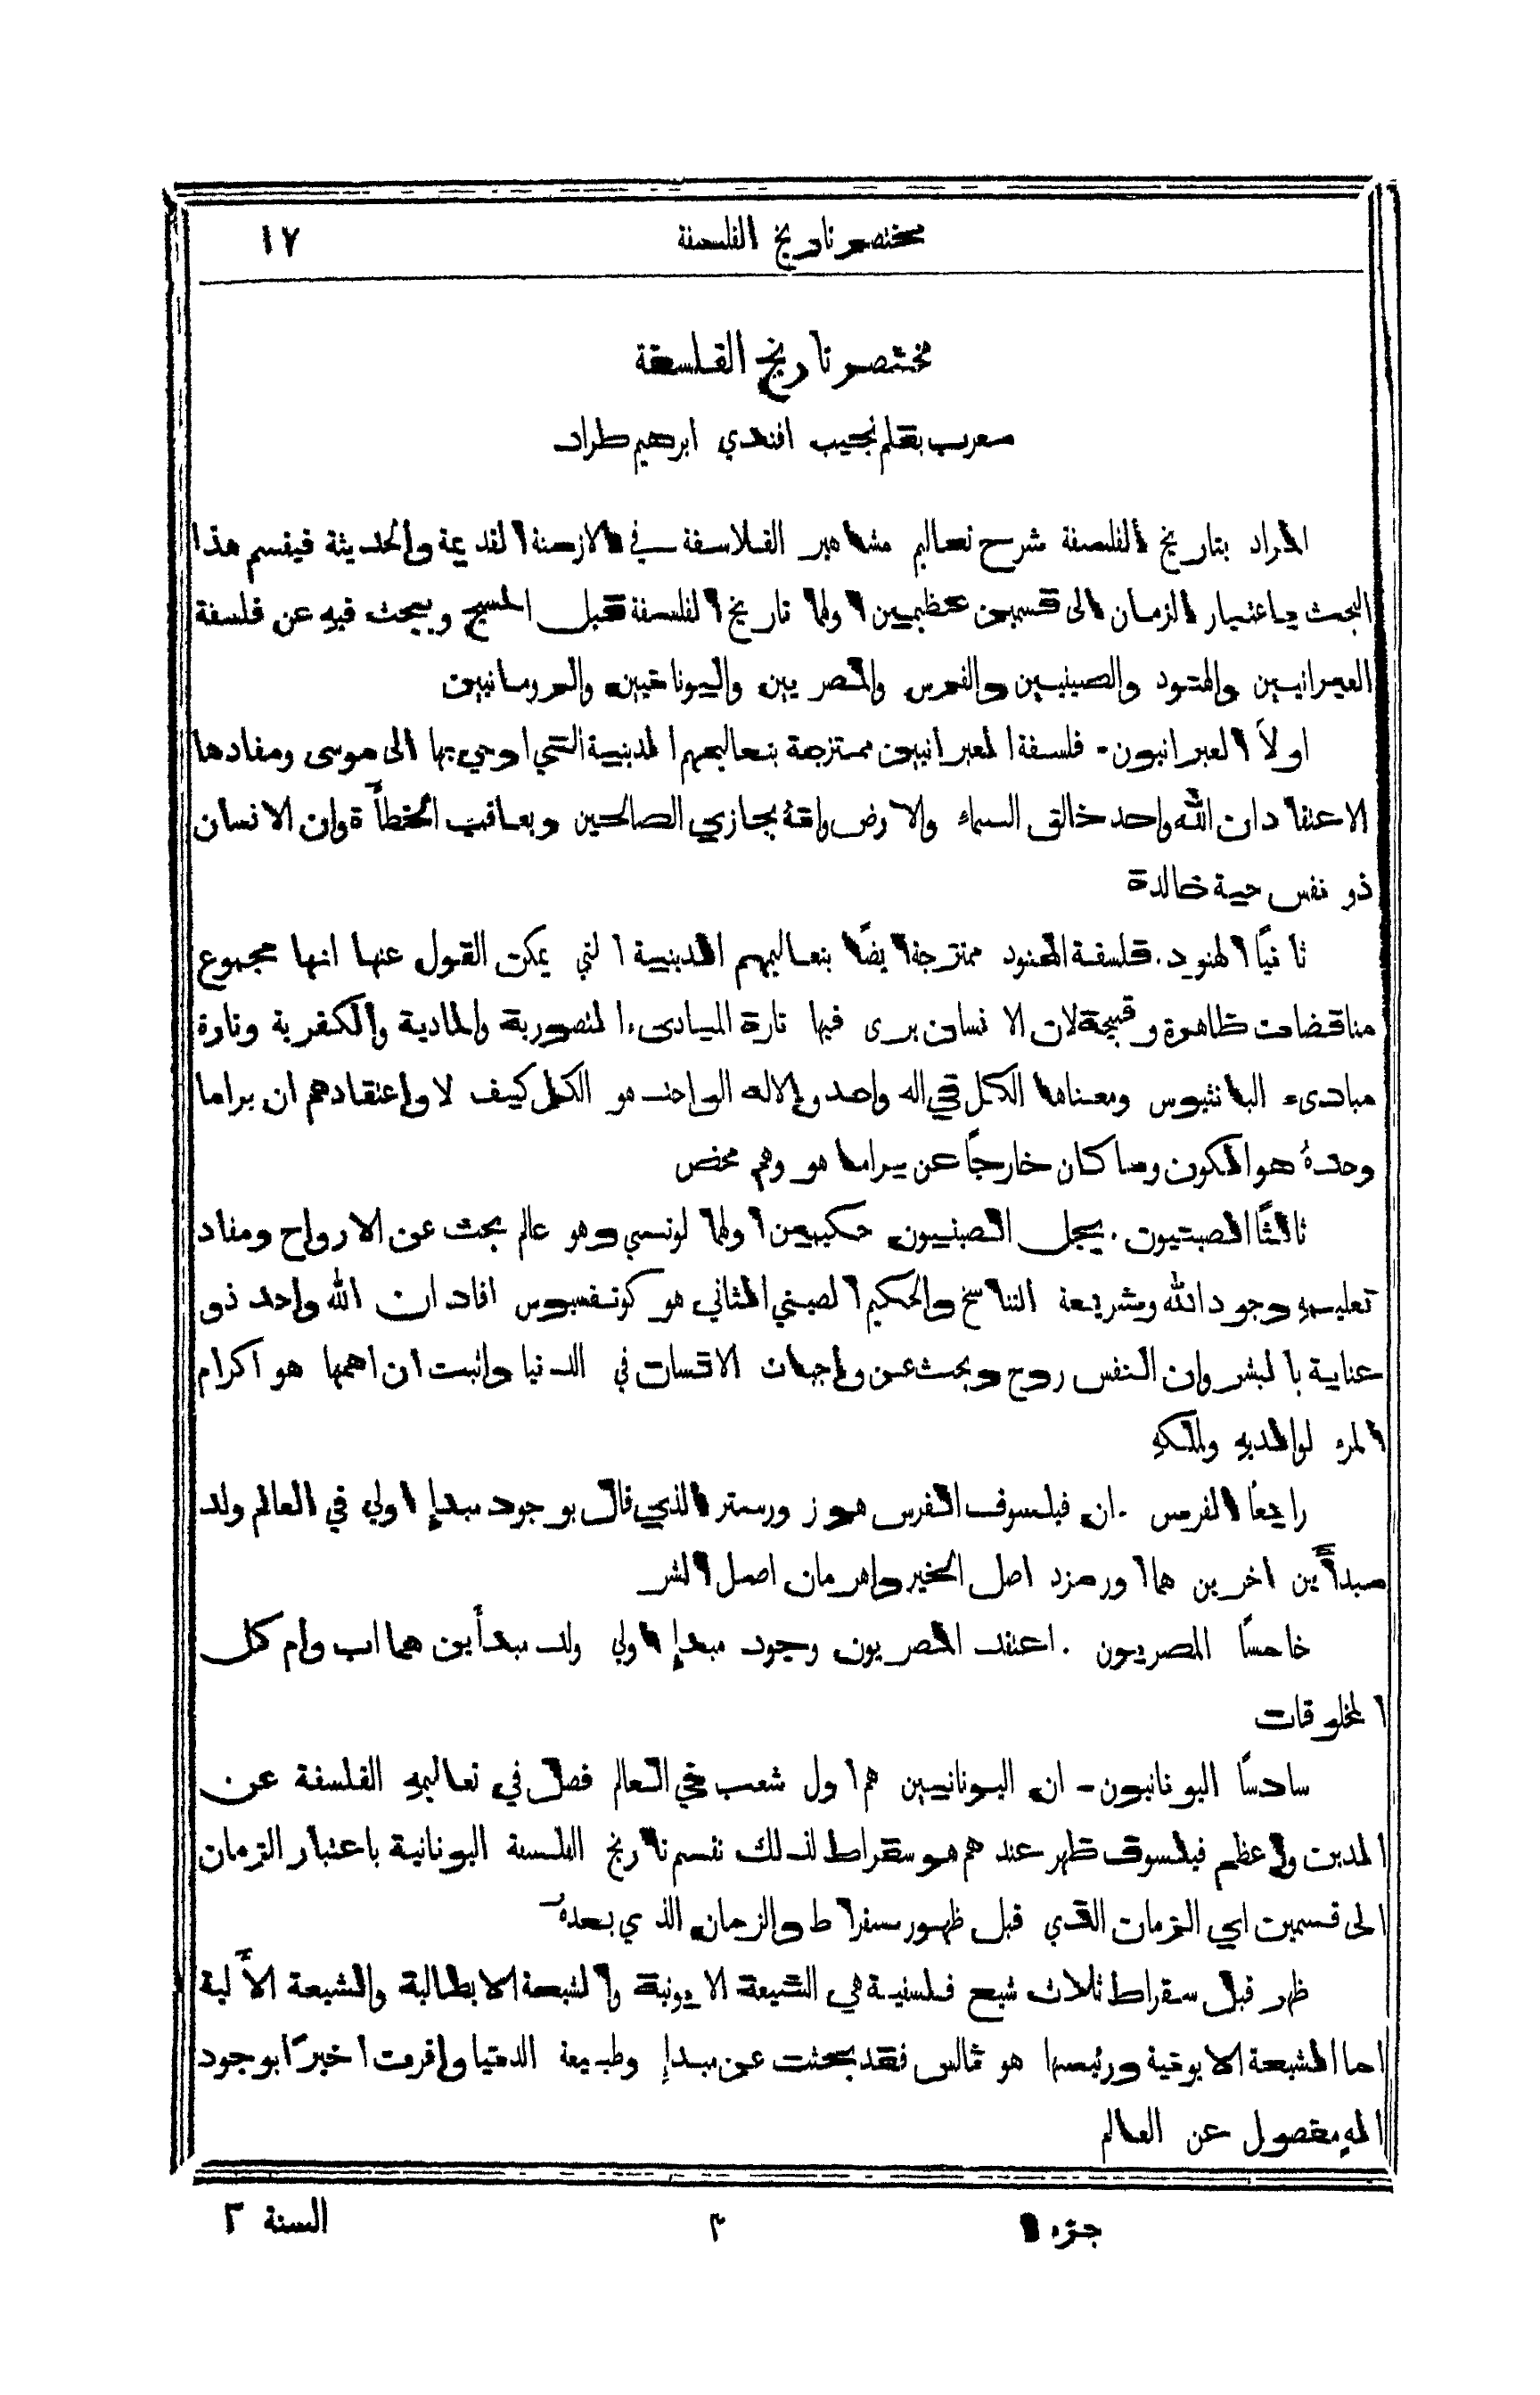 مختصر تاريخ الفلسفة ١٧
مختصر تاريخ الفلسفة
معرب بقلم نجيب افندي ابرهيم طراد
المراد بتاريخ الفلسفة شرح تعاليم مشاهير الفلاسفة في الازمنة القديمة والحديثة فيقسم هذا
البحث باعتبار الزمان الى قسمين عظيمين اولها تاريخ الفلسفة قبل المسيح ويبحث فيه عن فلسفة
العبرانيين والهنود والصينيين والفرس والمصريين واليونانيين والرومانيين
اولاً العبرانيون - فلسفة العبرانيين ممتزجة بتعاليمهم الدينية التي اوحي بها الى موسى ومفادها
الاعتقاد ان الله واحد خالق السماء والارض وانهُ يجازي الصالحين ويعاقب الخطأة وان الانسان
ذو نفس حية خالدة
ثانياً الهنود . فلسفة الهنود ممتزجة ايضاً بتعاليمهم الدينية التي يمكن القول عنها انها مجموع
مناقضات ظاهرة وقبيحة لان الانسان يرى فيها تارة المبادىء المتصورية والمادية والكفرية وتارة
مبادىء البانثيوس ومعناها الكل في اله واحد والاله الواحد هو الكل كيف لا واعتقادهم ان براما
وحدهُ هو المكون وما كان خارجاً عن براما هو وهم محض
ثالثاً الصينيون . يبجل الصينيون حكيمين اولها لوتسي وهو عالم بحث عن الارواح ومفاد
تعليمهِ وجود الله وشريعة التناسخ والحكيم الصيني الثاني هو كونفسيوس افاد ان الله واحد ذو
عناية بالبشر وان النفس روح وبحث عن واجبات الانسان في الدنيا واثبت ان اهمها هو اكرام
المرء لوالديهِ ولملكهِ
رابعاً الفرس . ان فيلسوف الفرس هو زورستر الذي قال بوجود مبدإ اولي في العالم ولد
مبدأين اخرين هما اورمزد اصل الخير واهرمان اصل الشر
خامساً المصريون . اعتقد المصريون وجود مبدإ اولي ولد مبدأين هما اب وام كل
المخلوقات
سادساً اليونانيون - ان اليونانيين هم اول شعب في العالم فصل في تعاليمهِ الفلسفة عن
الدين واعظم فيلسوف ظهر عندهم هو سقراط لذلك نقسم تاريخ الفلسفة اليونانية باعتبار الزمان
الى قسمين اي الزمان الذي قبل ظهور سقراط والزمان الذي بعدهُ
ظهر قبل سقراط ثلاث شيع فلسفية هي الشيعة الايونية والشيعة الايطالية والشيعة الآلية
اما الشيعة الايونية ورئيسها هو ثالس فقد بحثت عن مبدإ وطبيعة الدنيا واقرت اخيراً بوجود
الهٍ مفصول عن العالم
جزء ١ ٣ السنة ٢